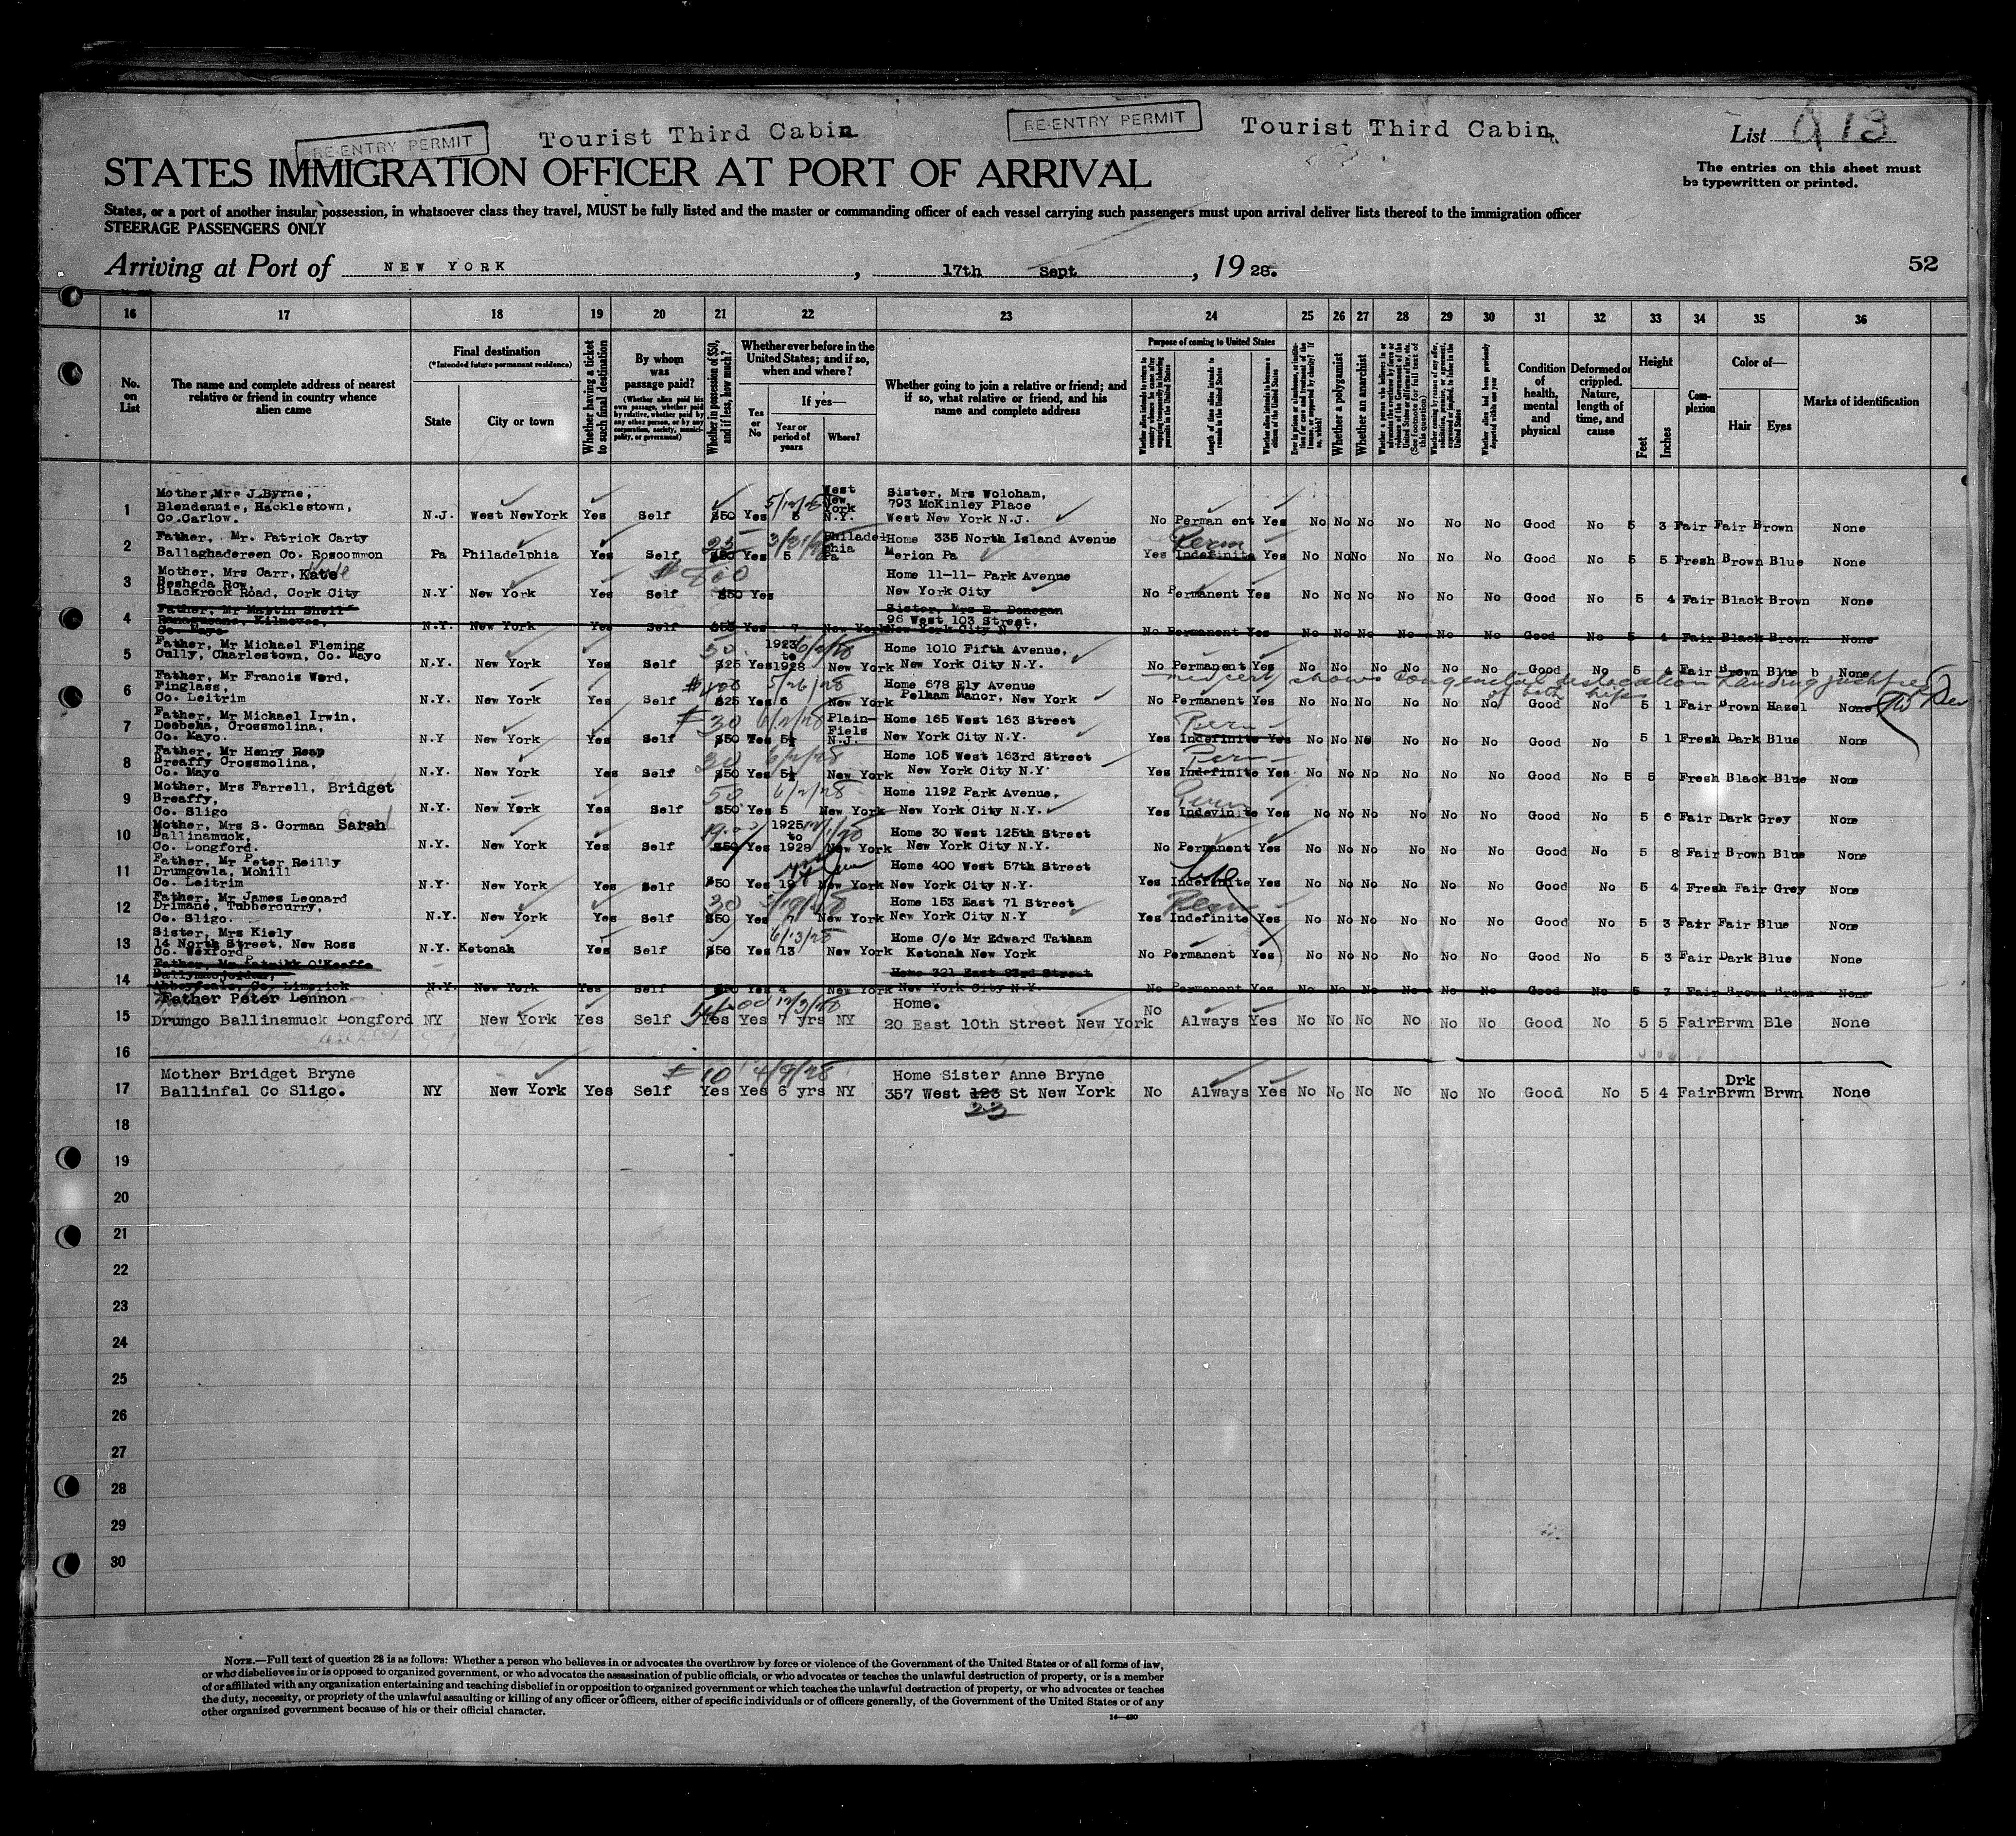 RE-ENTRY PERMIT
Tourist Third Cabin
RE-ENTRY PERMIT
Tourist Third Cabin
List 13
STATES IMMIGRATION OFFICER AT PORT OF ARRIVAL
The entries on this sheet must
be typewritten or printed.
States, or a port of another insular possession, in whatsoever class they travel, MUST be fully listed and the master or commanding officer of each vessel carrying such passengers must upon arrival deliver lists thereof to the immigration officer
STEERAGE PASSENGERS ONLY
Arriving at Port of NEW YORK, 17th Sept, 1928.
52
16 17 18 19 20 21 22 23 24 25 26 27 28 29 30 31 32 33 34 35 36
No. on List
The name and complete address of nearest relative or friend in country whence alien came
Final destination
(*Intended future permanent residence)
State
City or town
Whether having a ticket to such final destination
By whom was passage paid?
(Whether alien paid his own passage, whether paid by relative, whether paid by any other person, or by any corporation, society, municipality, or government)
Whether in possession of $50, and if less, how much?
Whether ever before in the United States; and if so, when and where?
Yes or No
If yes—
Year or period of years
Where?
Whether going to join a relative or friend; and if so, what relative or friend, and his name and complete address
Purpose of coming to United States
Length of time alien intends to remain in the United States
Whether alien intends to become a citizen of the United States
Whether a polygamist
Whether an anarchist
Condition of health, mental and physical
Deformed or crippled. Nature, length of time, and cause
Height
Feet
Inches
Complexion
Color of—
Hair
Eyes
Marks of identification
1 Mother, Mrs J.Byrne,
Blendennis, Hacklestown,
Co.Carlow.
N.J. West NewYork Yes Self $50 Yes 5/12/28 5 West New York N.Y.
Sister, Mrs Woloham,
793 McKinley Place
West New York N.J.
No Perman ent Yes No No No No No No Good No 5 3 Fair Fair Brown None
2 Father, Mr. Patrick Carty
Ballaghadereen Co. Roscommon
Pa Philadelphia Yes Self 25 $50 Yes 5 Philadelphia Pa
Home 335 North Island Avenue
Merion Pa
Yes Perm Indefinite Yes No No No No No No Good No 5 5 Fresh Brown Blue None
3 Mother, Mrs Carr, Kate
Besheda Row,
Blackrock Road, Cork City
N.Y New York Yes Self $50 Yes
Home 11-11- Park Avenue
New York City
No Permanent Yes No No No No No No Good No 5 4 Fair Black Brown None
4 Father, Mr Martin Sheil
Co. Mayo
N.Y. New York Yes Self $50 Yes 7 New York
Sister, Mrs E. Donegan
96 West 103 Street,
New York City N.Y.
No Permanent Yes No No No No No No Good No 5 4 Fair Black Brown None
5 Father, Mr Michael Fleming
Cully, Charlestown, Co. Mayo
N.Y. New York Yes Self 50 $25 Yes 1923 to 1928 6/2/28 New York
Home 1010 Fifth Avenue,
New York City N.Y.
No Permanent Yes No No No No No No Good No 5 4 Fair Brown Blue None
med cert shows congenital dislocation of both hips Landing justified
6 Father, Mr Francis Ward,
Finglass,
Co. Leitrim
N.Y. New York Yes Self $25 Yes 5/26/28 6 New York
Home 678 Ely Avenue
Pelham Manor, New York
No Permanent Yes No No No No No No Good No 5 1 Fair Brown Hazel None
7 Father, Mr Michael Irwin,
Deebeha, Crossmolina,
Co. Mayo.
N.Y New York Yes Self $30 $50 Yes 6/2/28 5½ Plain-Fiels N.J.
Home 165 West 163 Street
New York City N.Y.
Yes Perm Indefinite Yes No No No No No No Good No 5 1 Fresh Dark Blue None
8 Father, Mr Henry Reap
Breaffy Crossmolina,
Co. Mayo
N.Y. New York Yes Self 30 $50 Yes 6/2/28 5½ New York
Home 105 West 163rd Street
New York City N.Y.
Yes Perm Indefinite Yes No No No No No No Good No 5 5 Fresh Black Blue None
9 Mother, Mrs Farrell, Bridget
Breaffy,
Co. Sligo
N.Y. New York Yes Self 50 $50 Yes 6/2/28 5 New York
Home 1192 Park Avenue,
New York City N.Y.
Yes Perm Indevinite Yes No No No No No No Good No 5 6 Fair Dark Grey None
10 Mother, Mrs S. Gorman Sarah
Ballinamuck,
Co. Longford.
N.Y. New York Yes Self $50 Yes 1925 to 1928 New York
Home 30 West 125th Street
New York City N.Y.
No Permanent Yes No No No No No No Good No 5 8 Fair Brown Blue None
11 Father, Mr Peter Reilly
Drumgowla, Mohill
Co. Leitrim
N.Y. New York Yes Self $50 Yes New York
Home 400 West 57th Street
New York City N.Y.
Yes Indefinite Yes No No No No No No Good No 5 4 Fresh Fair Grey None
12 Father, Mr James Leonard
Drimane, Tubbercurry,
Co. Sligo.
N.Y. New York Yes Self 30 $50 Yes 7 New York
Home 153 East 71 Street
New York City N.Y
Yes Perm Indefinite Yes No No No No No No Good No 5 3 Fair Fair Blue None
13 Sister, Mrs Kiely
14 North Street, New Ross
Co. Wexford
N.Y. Ketonah Yes Self $50 Yes 6/13/28 13 New York
Home C/o Mr Edward Tatham
Ketonah New York
No Permanent Yes No No No No No No Good No 5 3 Fair Dark Blue None
14 Father, Mr Patrikk O'Keeffe
Abbeyfeale, Co. Limerick
N.Y. New York Yes Self Yes 4 New York
Home 321 East 83rd Street
New York City N.Y.
No Permanent Yes No No No No No No Good No 5 3 Fair Brown Brown None
15 Father Peter Lennon
Drumgo Ballinamuck Longford
NY New York Yes Self Yes Yes 7 yrs NY
Home.
20 East 10th Street New York
No Always Yes No No No No No No Good No 5 5 Fair Brwn Ble None
16
17 Mother Bridget Bryne
Ballinfal Co Sligo.
NY New York Yes Self $10 Yes Yes 4/9/28 6 yrs NY
Home Sister Anne Bryne
357 West 123 St New York
23
No Always Yes No No No No No No Good No 5 4 Fair Drk Brwn Brwn None
18
19
20
21
22
23
24
25
26
27
28
29
30
NOTE.—Full text of question 28 is as follows: Whether a person who believes in or advocates the overthrow by force or violence of the Government of the United States or of all forms of law,
or who disbelieves in or is opposed to organized government, or who advocates the assassination of public officials, or who advocates or teaches the unlawful destruction of property, or is a member
of or affiliated with any organization entertaining and teaching disbelief in or opposition to organized government or which teaches the unlawful destruction of property, or who advocates or teaches
the duty, necessity, or propriety of the unlawful assaulting or killing of any officer or officers, either of specific individuals or of officers generally, of the Government of the United States or of any
other organized government because of his or their official character.